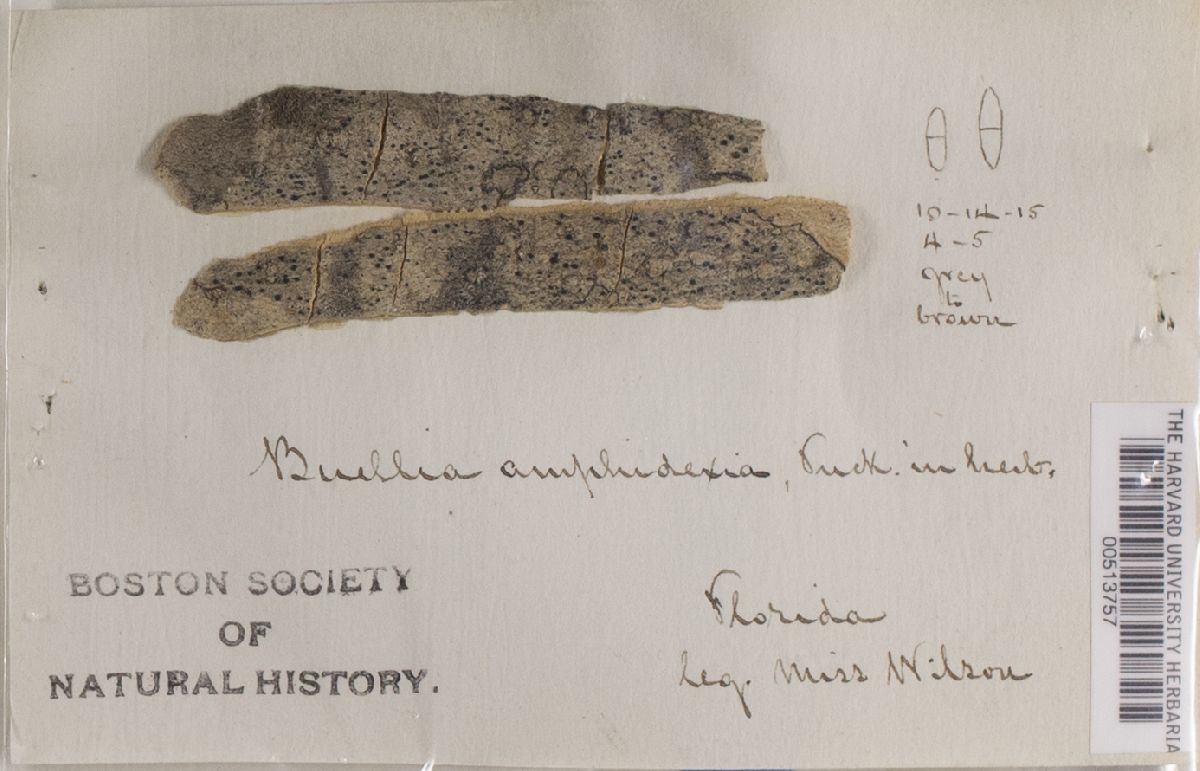 10-14-15
4-5
grey
to
brown
Buellia amphidexia, Tuck. in herb.
BOSTON SOCIETY
OF
NATURAL HISTORY.
Florida
leg. Miss Wilson
THE HARVARD UNIVERSITY HERBARIA
00513757